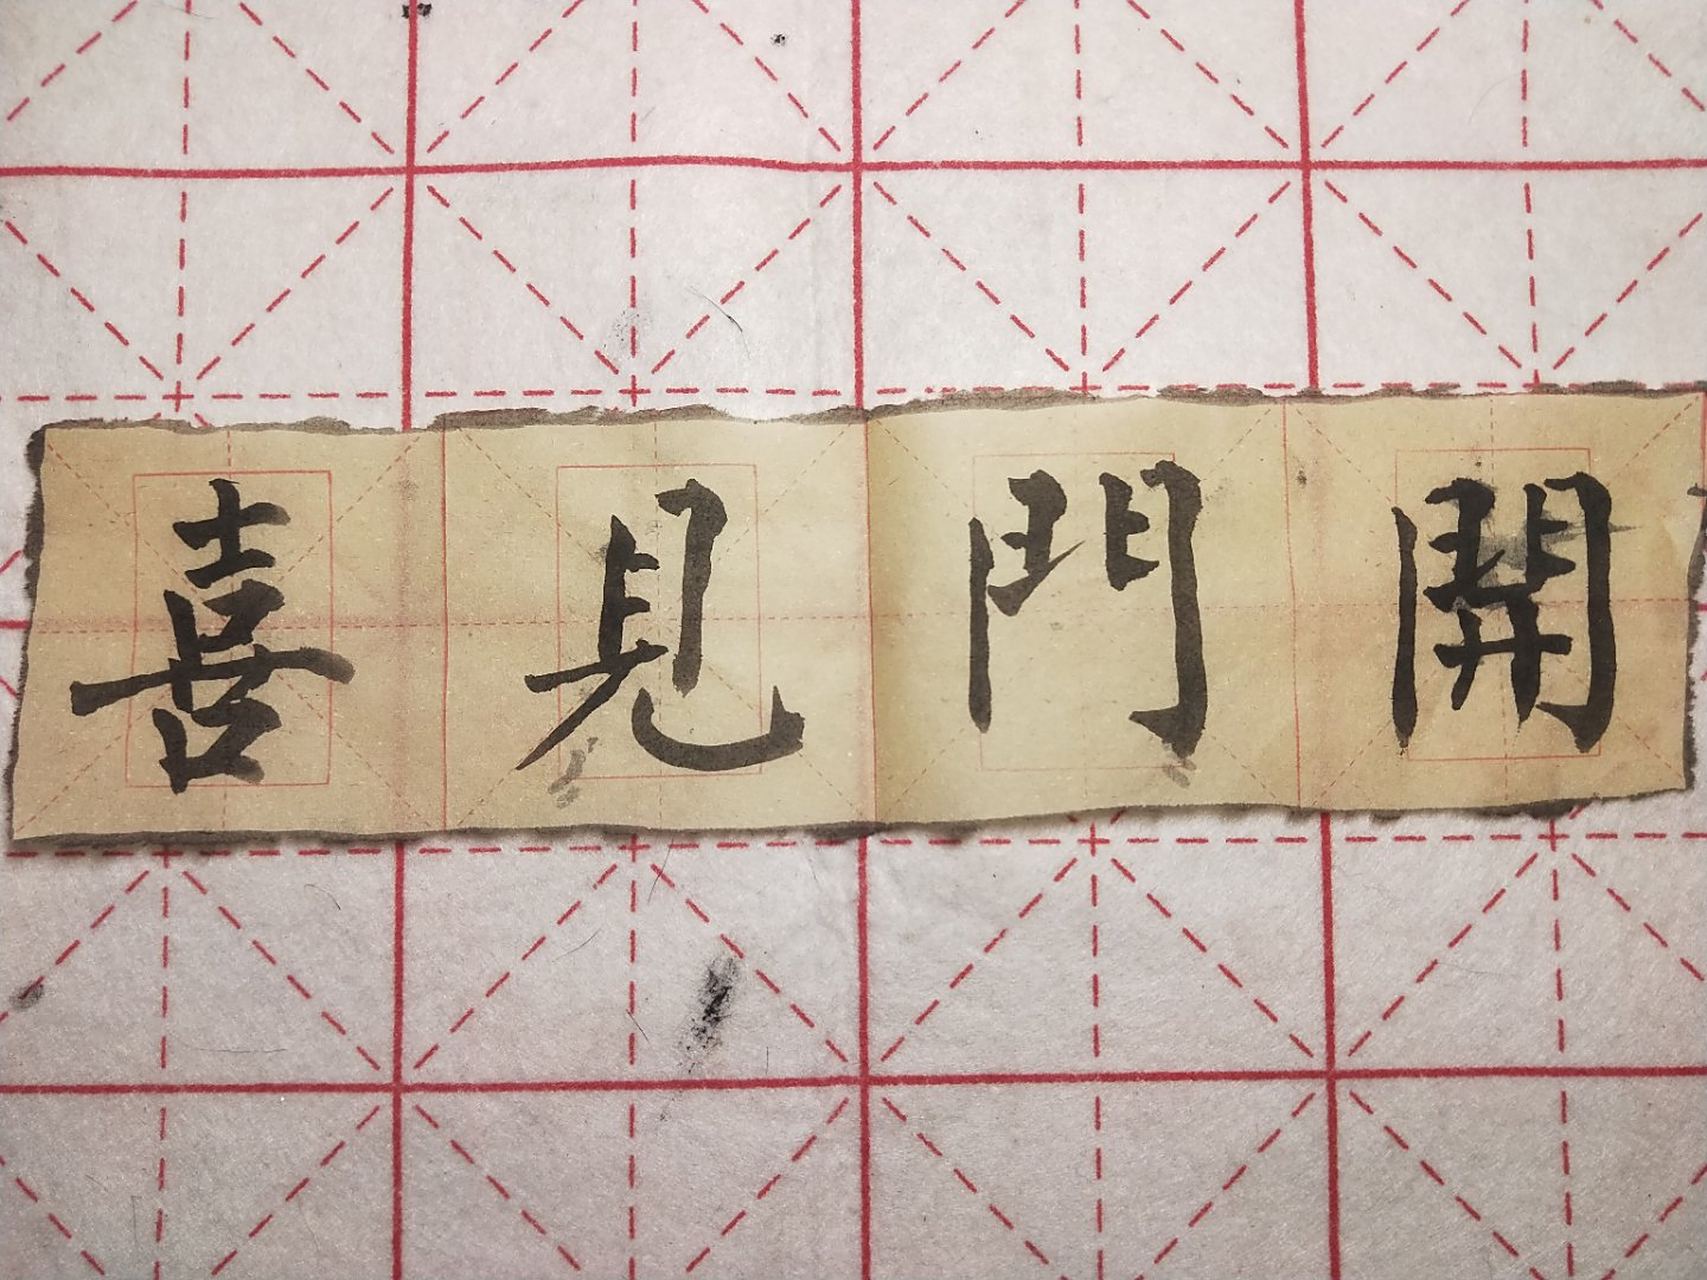 開門見喜